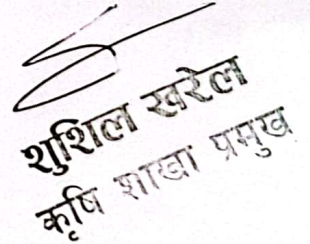 शुशिल खरेल
कृषि शाखा प्रमुख